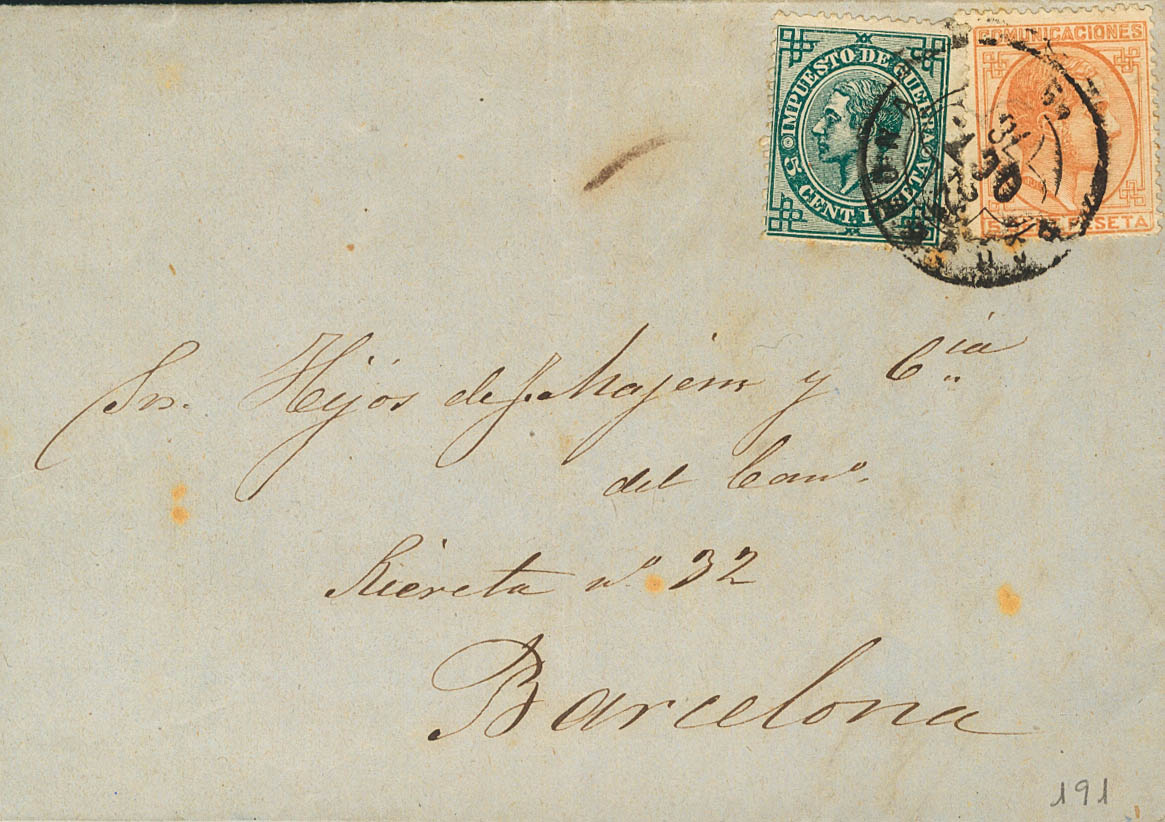 IMPUESTO DE GUERRA
5 CENT. PESETA
COMUNICACIONES
PESETA
Srs. Hijos de J. Majem y Cía
del Com°.
Riereta n° 32
Barcelona
191